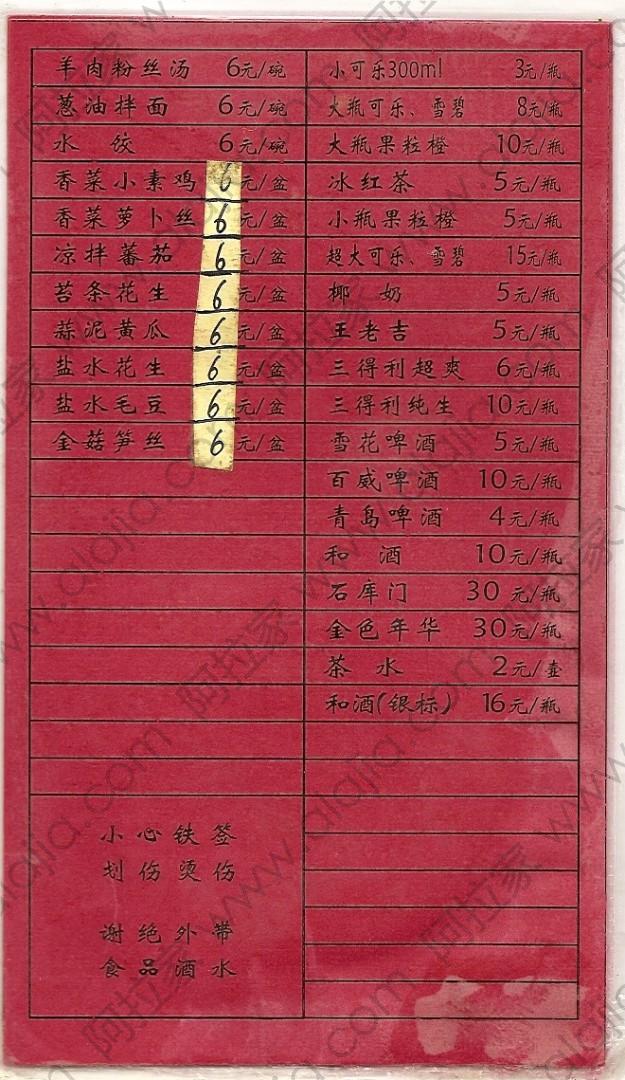 羊肉粉丝汤 6元/碗
葱油拌面 6元/碗
水饺 6元/碗
香菜小素鸡 6元/盆
香菜萝卜丝 6元/盆
凉拌蕃茄 6元/盆
苔条花生 6元/盆
蒜泥黄瓜 6元/盆
盐水花生 6元/盆
盐水毛豆 6元/盆
金菇笋丝 6元/盆
小心铁签
划伤烫伤
谢绝外带
食品酒水
小可乐300ml 3元/瓶
大瓶可乐、雪碧 8元/瓶
大瓶果粒橙 10元/瓶
冰红茶 5元/瓶
小瓶果粒橙 5元/瓶
超大可乐、雪碧 15元/瓶
椰奶 5元/瓶
王老吉 5元/瓶
三得利超爽 6元/瓶
三得利纯生 10元/瓶
雪花啤酒 5元/瓶
百威啤酒 10元/瓶
青岛啤酒 4元/瓶
和酒 10元/瓶
石库门 30元/瓶
金色年华 30元/瓶
茶水 2元/壶
和酒(银标) 16元/瓶
阿拉家 www.alajia.com